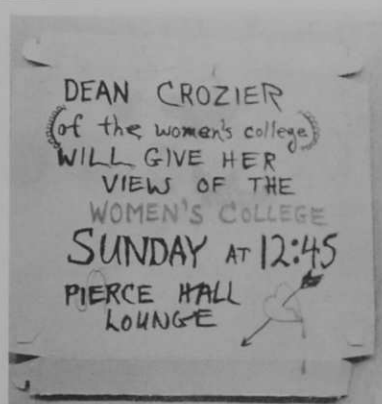 DEAN CROZIER
(of the women's college)
WILL GIVE HER
VIEW OF THE
WOMEN'S COLLEGE
SUNDAY AT 12:45
PIERCE HALL
LOUNGE